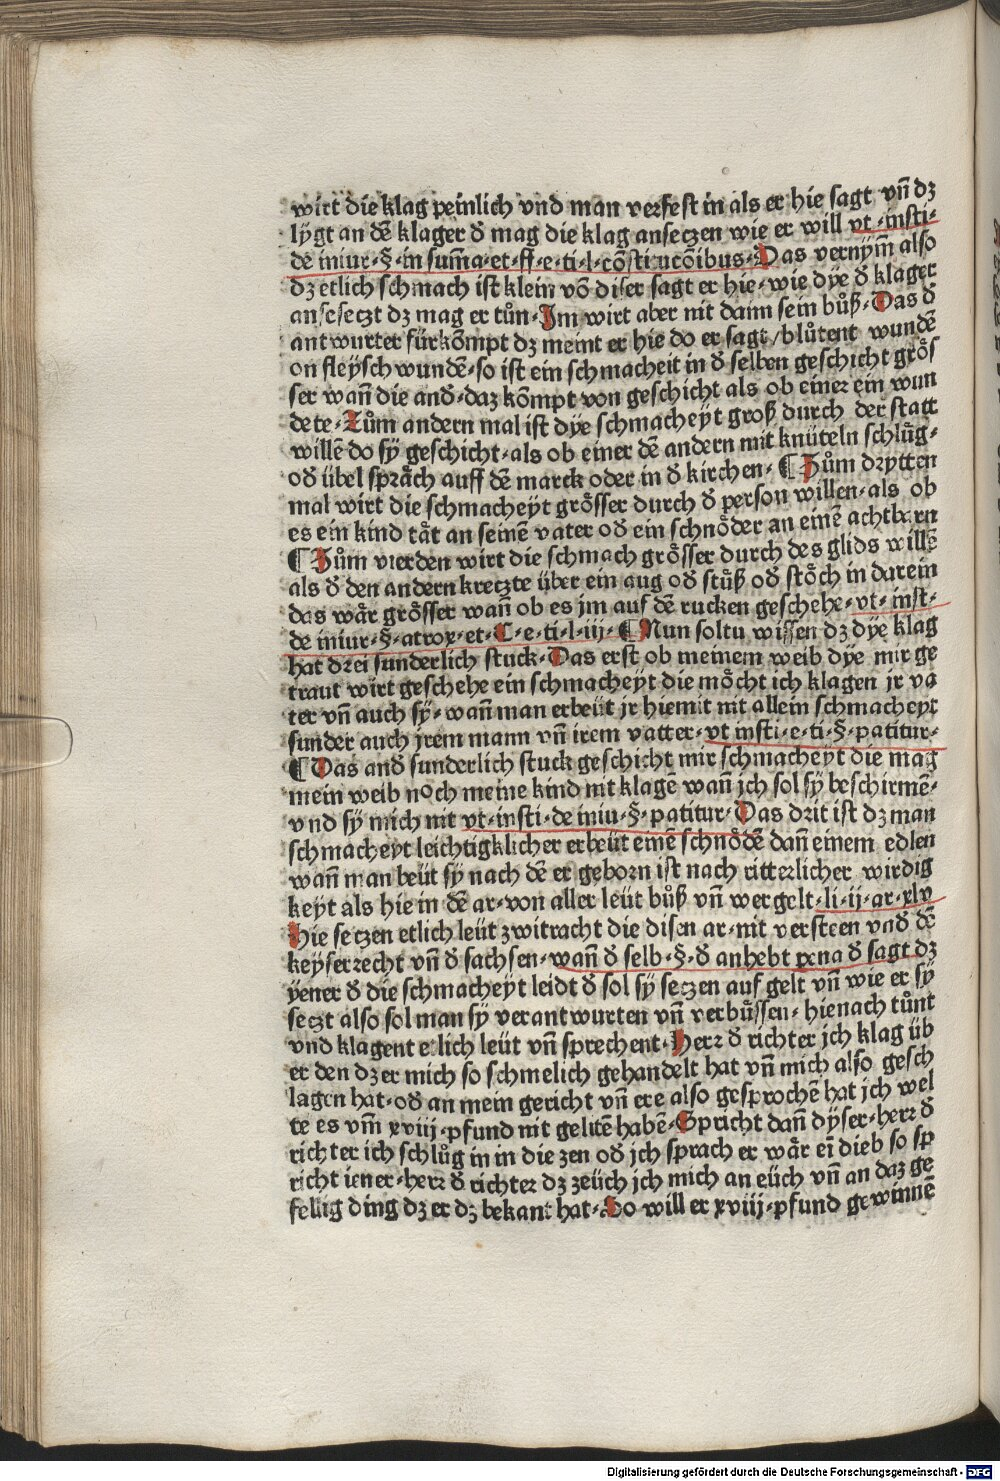 wirt die klag peinlich vnd man verfest in als er hie sagt vn̄ dz
lygt an dē klager đ mag die klag ansetzen wie er will vt · insti·
de iniur·§·in sum̄a·et·ff·e·ti·l·cōstitucōibus·Das vernym̄ also
dz etlich schmach ist klein vō diser sagt er hie·wie dye đ klager
ansesetzt dz mag er tůn·Im wirt aber nit dann sein bůß·Das đ
antwurter fürkōmpt dz meint er hie do er sagt/blůtent wundē
on fleysch wundē·so ist ein schmacheit in đ selben geschicht groͤs
ser wan̄ die anđ·daz kōmpt von geschicht als ob einer ein wun
dete·Zům andern mal ist dye schmacheyt groß durch der statt
willē do sy geschicht·als ob einer dē andern mit knüteln schlůg·
ođ übel spraͤch auff dē marck oder in đ kirchen·¶Zům drytten
mal wirt die schmacheyt groͤsser durch đ person willen·als ob
es ein kind taͤt an seinē vater ođ ein schnoͤder an einē achtbarn
¶Zům vierden wirt die schmach groͤsser durch des glids willē
als đ den andern kretzte über ein aug ođ stůß ođ stoͤch in darein
das waͤr groͤsser wan̄ ob es jm auf dē rucken geschehe·vt·inst·
de iniur·§·atrox·et·C·e·ti·l·iij·¶Nun soltu wissen dz dye klag
hat drei sunderlich stuck·Das erst ob meinem weib dye mir ge
traut wirt geschehe ein schmacheyt die moͤcht ich klagen jr va
ter vn̄ auch sy·wan̄ man erbeüt jr hiemit nit allein schmacheyt
sunder auch jrem mann vn̄ irem vatter·vt insti·e·ti·§·patitur·
¶Das anđ sunderlich stuck geschicht mir schmacheyt die mag
mein weib noch meine kind nit klagē wan̄ jch sol sy beschirmē·
vnd sy mich nit vt·insti·de iniu·§·patitur·Das drit ist dz man
schmacheyt leichtigklicher erbeüt einē schnoͤdē dan̄ einem edlen
wan̄ man beüt sy nach dē er geborn ist nach ritterlicher wirdig
keyt als hie in dē ar·von aller leüt bůß vn̄ wergelt·li·ij·ar·xlv
Hie setzen etlich leüt zwitracht die disen ar·nit versteen vnđ dē
keyserrecht vn̄ đ sachsen·wan̄ đ selb·§·đ anhebt pena đ sagt dz
yener đ die schmacheyt leidt đ sol sy setzen auf gelt vn̄ wie er sy
setzt also sol man sy verantwurten vn̄ verbuͤssen·hienach tůnt
vnd klagent etlich leüt vn̄ sprechent·Herr đ richter jch klag üb
er den dz er mich so schmelich gehandelt hat vn̄ mich also gesch
lagen hat·ođ an mein gericht vn̄ ere also gesprochē hat jch wel
te es vm̄ xviij·pfund nit gelitē habē·Spricht dan̄ dyser·herr đ
richter ich schlůg in in die zen ođ jch sprach er waͤr eī dieb so sp
richt iener·herr đ richter dz zeüch jch mich an eüch vn̄ an daz ge
fellig ding dz er dz bekant hat·So will er xviij·pfund gewinnē
Digitalisierung gefördert durch die Deutsche Forschungsgemeinschaft - DFG